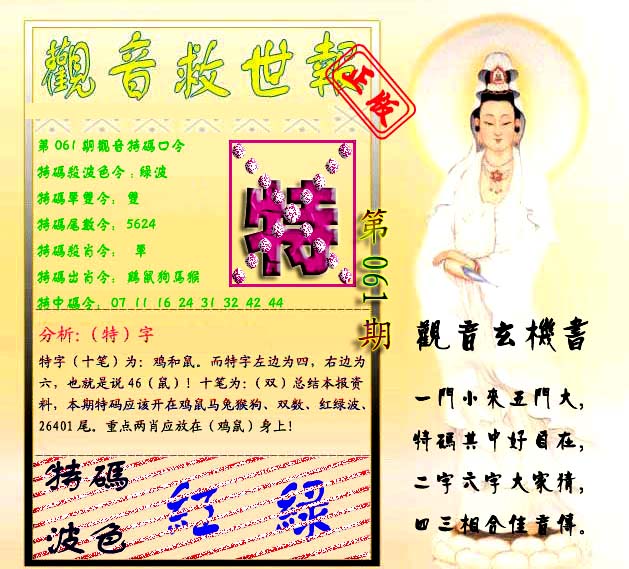 觀音救世報
正版
第061期觀音特碼口令
特碼殺波色令:綠波
特碼單雙令: 雙
特碼尾數令: 5624
特碼殺肖令: 單
特碼出肖令: 鷄鼠狗馬猴
特中碼令: 07 11 16 24 31 32 42 44
特
第061期
分析:（特）字
特字（十笔）为：鸡和鼠。而特字左边为四，右边为
六，也就是说46（鼠）！十笔为：（双）总结本报资
料，本期特码应该开在鸡鼠马兔猴狗、双数、红绿波、
26401尾。重点两肖应放在（鸡鼠）身上！
特碼
波色
紅 綠
觀音玄機書
一門小來五門大,
特碼其中好自在,
二字六字大家猜,
四三相合佳音傳。